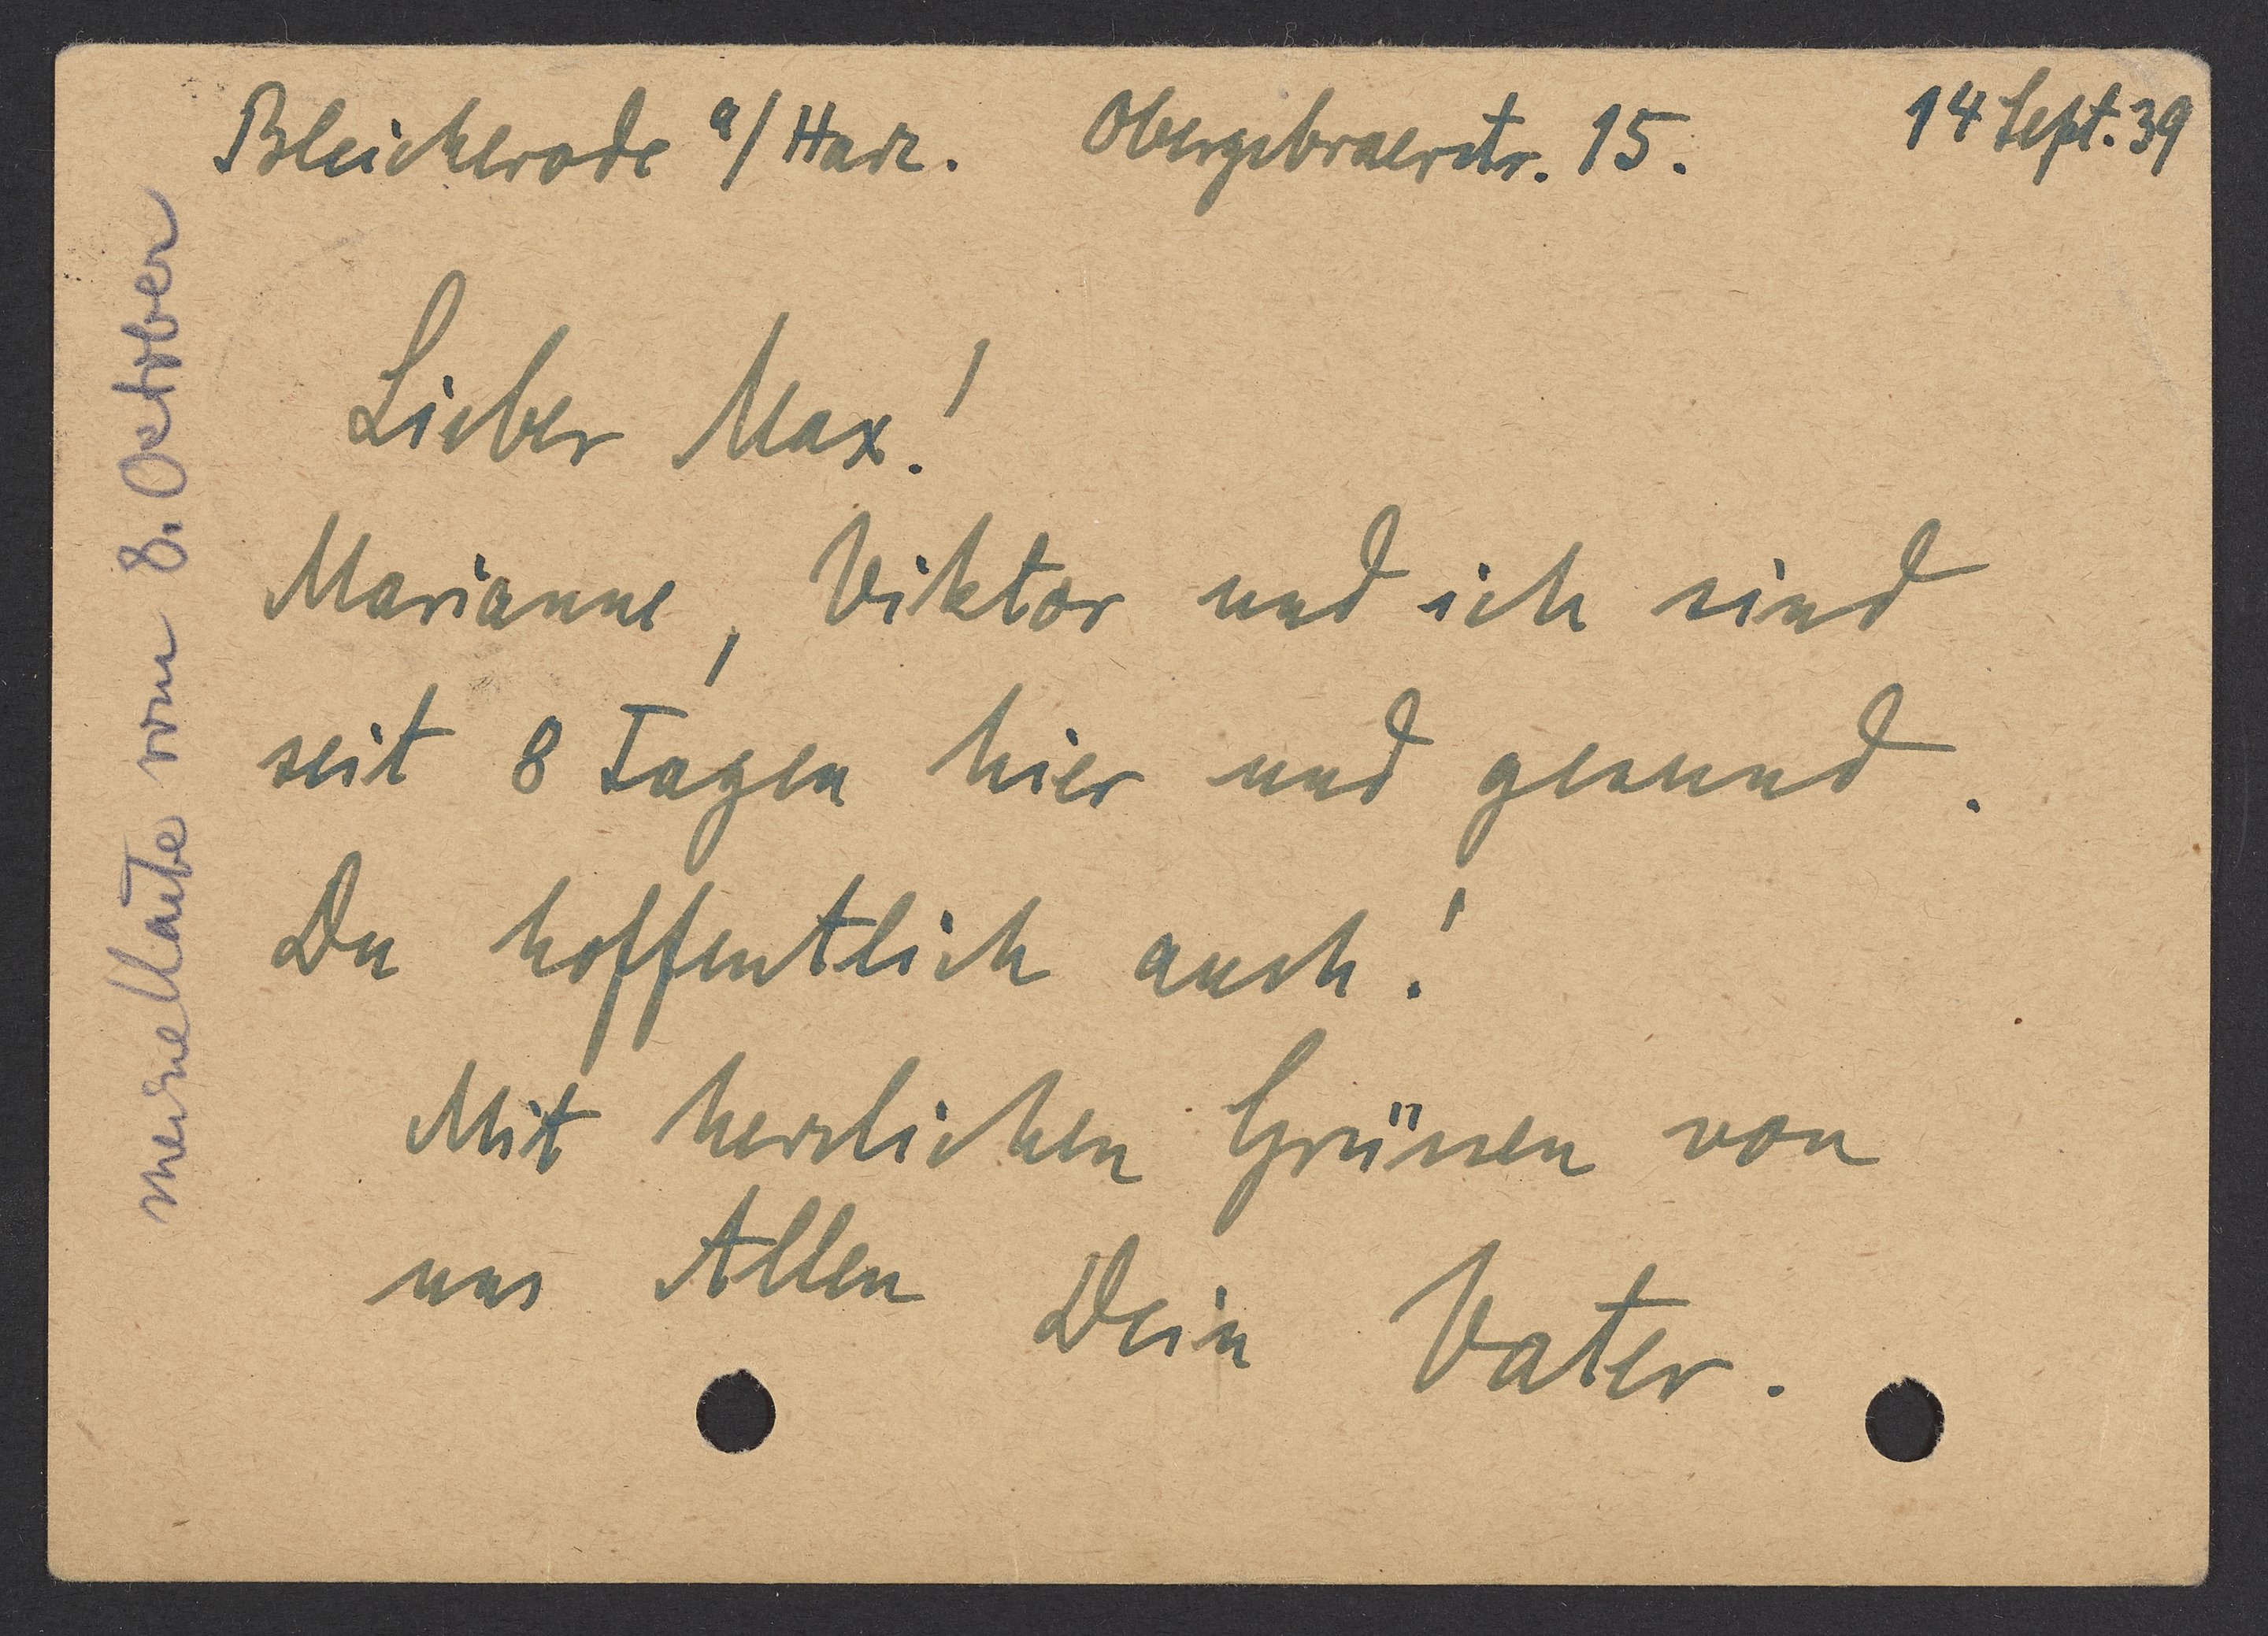 Bleicherode a/Harz. Obergebraerstr. 15. 14 Sept. 39
Lieber Max!
Marianne, Viktor und ich sind
seit 8 Tagen hier und gesund.
Du hoffentlich auch!
Mit herzlichen Grüssen von
uns Allen Dein Vater.
meine Karte vom 8. October